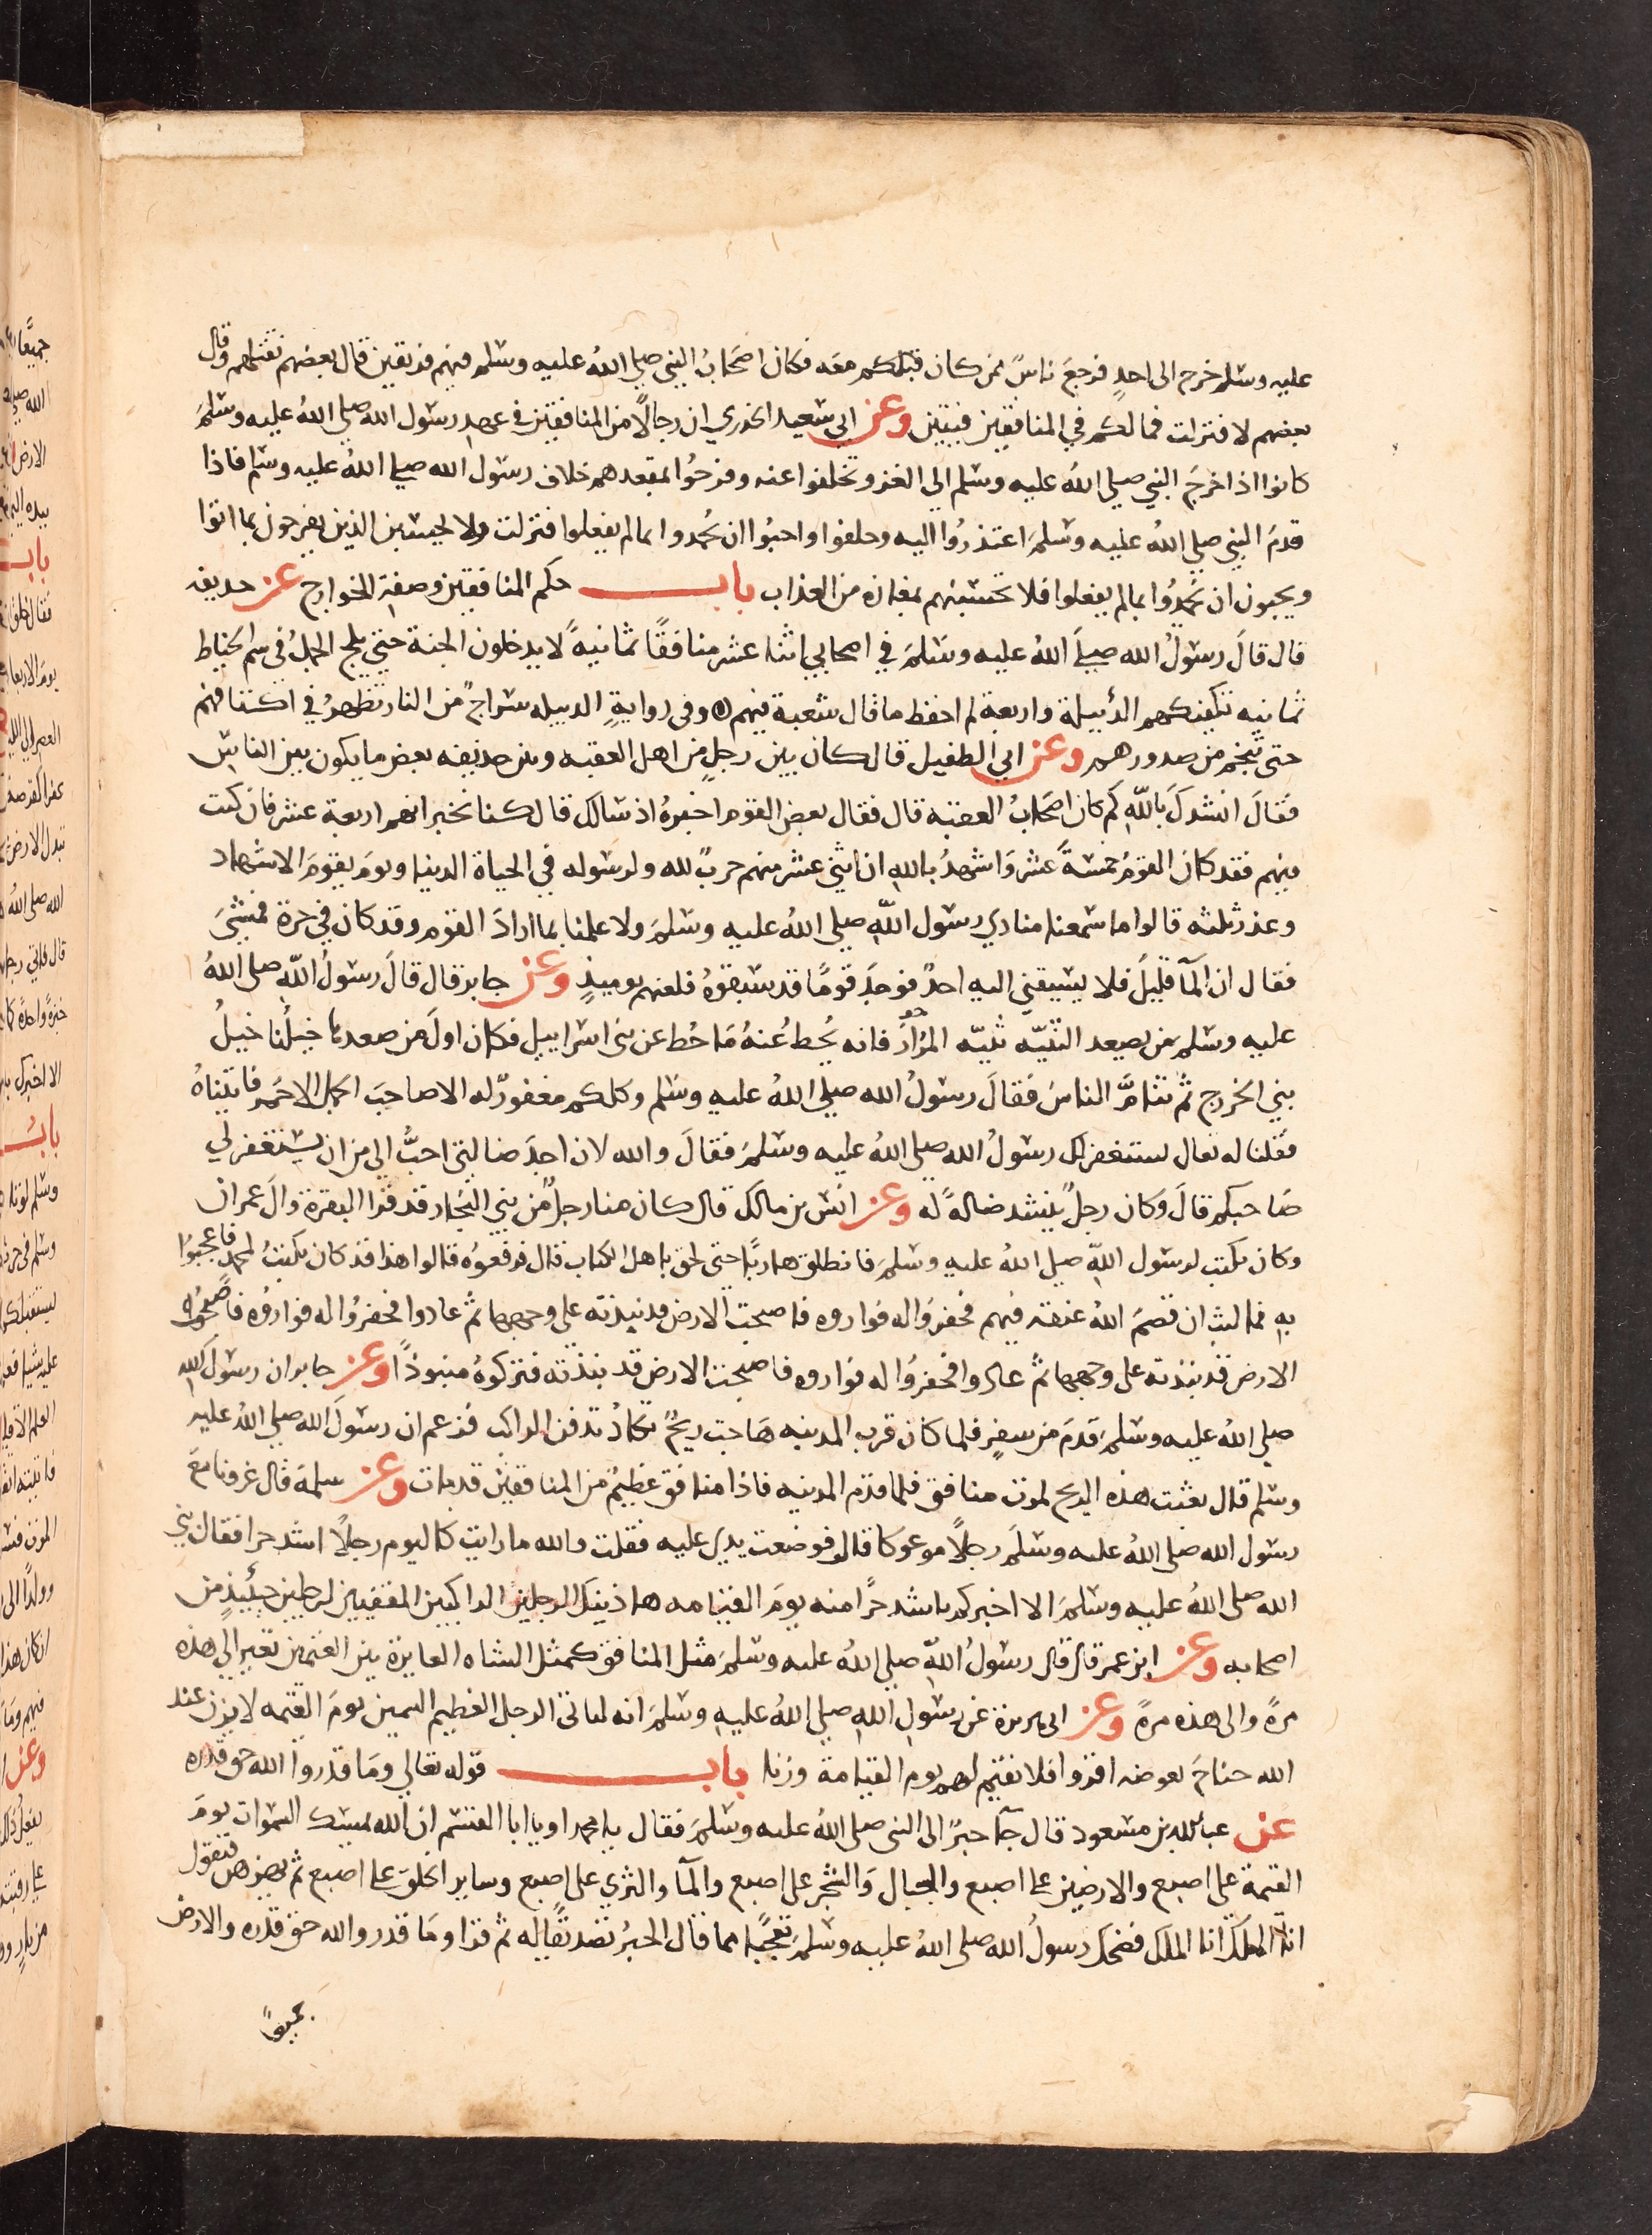 عليه وسلم خرج الى احدٍ فرجعَ ناسٌ ممن كان قبلكم معه فكان اصحابُ النبي صلى اللهُ عليه وسلم فيهم فريقين قال بعضهم نقتلهم وقال
بعضهم لا فنزلت فما لكم في المنافقين فئتين وعن ابي سعيد الخدري ان رجالًا من المنافقين في عهد رسول الله صلى اللهُ عليه وسلمَ
كانوا اذا خرجَ النبي صلى اللهُ عليه وسلم الى الغزو تخلفوا عنه وفرحُوا بمقعدهم خلاف رسول الله صلى اللهُ عليه وسلم فاذا
قدمَ النبي صلى اللهُ عليه وسلمَ اعتذرُوا اليه وحلفوا واحبُوا ان يُحمدوا بما لم يفعلوا فنزلت ولا تحسبن الذين يفرحون بما اتوا
ويحبون ان يُحمدُوا بما لم يفعلوا فلا تحسبنهم بمفازه من العذاب باب حكم المنافقين وصفة الخوارج عن حذيفه
قال قالَ رسولُ الله صلى اللهُ عليه وسَلمَ في اصحابي اثنا عشر منافقًا ثمانيهً لا يدخلون الجنة حتى يلج الجملُ في سم الخياط
ثمانيه تكفيكهم الدُبيلة واربعة لم احفظ ما قال شعبة فيهم وفي روايةٍ الدبيله سراجٌ من النار تظهرُ في اكتافهم
حتى تنجم من صدورهم وعن ابي الطفيل قال كان بين رجلٍ من اهل العقبه وبين حذيفه بعض ما يكون بين الناس
فقالَ انشدكَ باللهِ كم كان اصحابُ العقبَه قال فقال بعض القوم اخبرهُ اذ سالك قال كنا نخبر انهم اربعة عشر فان كنت
فيهم فقد كان القومُ خمسةَ عشر وَاشهدُ باللهِ ان اثني عشر منهم حربٌ لله ولرسوله في الحياة الدنيا ويومَ يقومَ الاشهاد
وعذر ثلثه قالوا ما سمعنا منادي رسول اللهِ صلى اللهُ عليه وسلمَ ولا علمنا بما ارادَ القوم وقد كان في حرة فمشىَ
فقال ان المآ قليلَ فلا يسبقني اليه احدٌ فوجدَ قومًا قد سبقوهُ فلعنهم يوميذٍ وعن جابر قال قالَ رسولُ اللهِ صلى اللهُ
عليه وسلم من يصعد الثنيّه ثنيّه المُرَار فانه يُحط عُنهُ مَا حُط عن بني اسراييل فكان اولَ من صعدها خيلُنا خيلُ
بني الخزرج ثُم تتامَّ الناسُ فقالَ رسولُ الله صلى اللهُ عليه وسَلم وكلكم مغفورٌ له الا صاحبَ الجمل الاحمر فاتيناهُ
فقلنا له تعال يستغفر لك رسولُ الله صلى اللهُ عليه وسلمَ فقالَ والله لان اجدَ ضالتي احبُّ الي من ان يستغفر لي
صَاحبكم قالَ وَكان رجلٌ ينشد ضالةً له وعن انس بن مالك قال كان منا رجلٌ من بني النجار قد قرا البقرة وال عمران
وكان يكتب لرسول اللهِ صلى اللهُ عليه وسلمَ فانطلق هاربًا حتى لحق باهل الكتاب قال فرفعوُه قالوا هذا قد كان يكتبُ لمحمد فاعجبُوا
بهِ فما لبث ان قصمَ اللهُ عنقه فيهم فحفرُوا له فواروه فاصبحت الارض قد نبذته على وجهها ثُم عادوا فحفرُوا له فوارُوه فاصبحت
الارض قد نبذته على وجهها ثُم عادوا فحفرُوا له فواروه فاصبحت الارض قد نبذته فتركوهُ منبوذًا وعن جابر ان رسول الله
صلى اللهُ عليه وسلمَ قدمَ من سفرٍ فلما كان قرب المدينه هَاجت ريحٌ تكادُ تدفن الراكب فزعم ان رسولَ الله صلى اللهُ عليه
وسلم قال بعثت هذه الريح لموت منافق فلما قدم المدينه فاذا منافق عظيمٌ من المنافقين قد مات وعن سلمة قال غزونا معَ
رسول الله صلى اللهُ عليه وسلمَ رجلًا موعوكا قال فوضعت يدي عليه فقلت والله ما رايت كاليوم رجلًا اشد حرا فقال نبي
الله صلى اللهُ عليه وسلمَ الا اخبركم باشد حرًا منه يومَ القيامه هاذينك الرجلين الراكبين المقفيين لرجلين حينئيذٍ من
اصحابه وعن ابن عمر قال قال رسولُ اللهِ صلى اللهُ عليه وسلمَ مثل المنافق كمثل الشاه العايرة بين الغنمين تعير الي هذه
مرةً والى هذه مرةً وعن ابي هريرة عن رسولِ اللهِ صلى اللهُ عليه وسلمَ انه لياتي الرجل العظيم السمين يومَ القيمه لا يزن عند
الله جناحَ بعوضه اقروا فلا نقيم لهم يوم القيامة وزنا باب قوله تعالي ومَا قدروا الله حق قدره
عن عبد الله بن مسعود قال جآ حبرٌ الى النبي صلى اللهُ عليه وسلمَ فقال يا محمد او يا ابا القسم ان الله يمسك السموات يومَ
القيمة على اصبع والارضين على اصبع والجبال وَالشجر على اصبع والمآ والثرى على اصبع وساير الخلق على اصبع ثم يهزهن فيقول
انا الملك انا الملك فضحك رسولُ الله صلى اللهُ عليه وسلمَ تعجبًا مما قال الحبرُ تصديقًا له ثم قرا ومَا قدروا الله حق قدره والارض
جميعًا